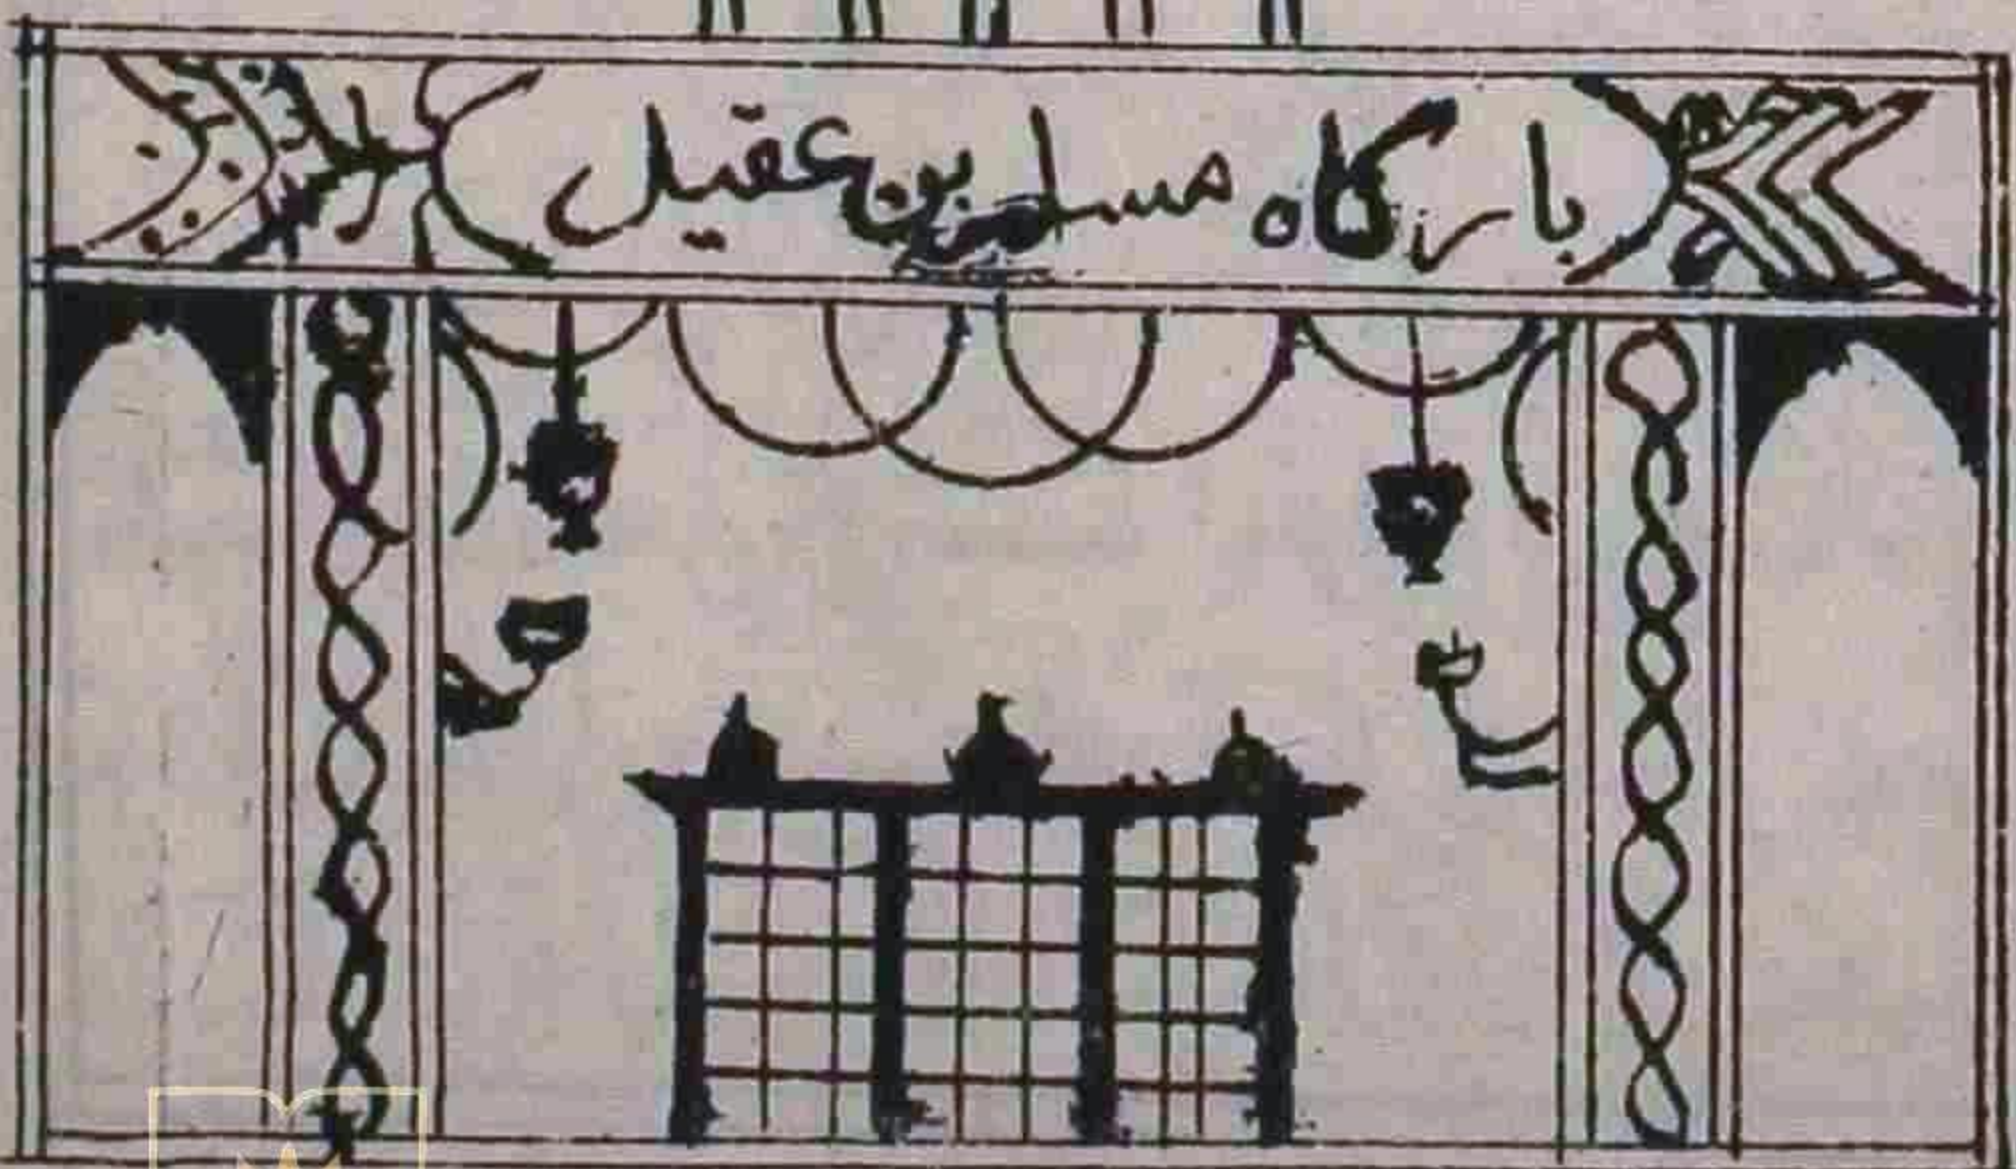 بارگاه مسلم بن عقیل